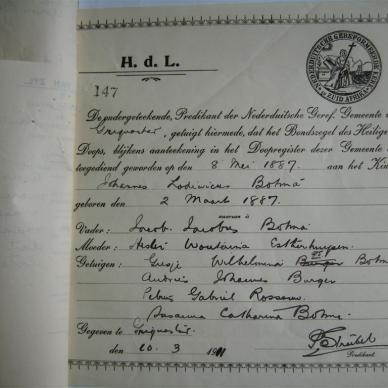 H. d. L.
147
NEDERDUITSCHE GEREFORMEERDE
ZUID AFRIKA
De ondergeteekende, Predikant der Nederduitsche Geref. Gemeente
getuigt hiermede, dat het Bondszegel des Heilige
Doops, blijkens aanteekening in het Doopregister dezer Gemeente
toegediend geworden op den 8 Mei 1887. aan het
Johannes Lodiwicus Botma
geboren den 2 Maart 1887.
waarvan is
Vader: Jacob Jacobus Botma
Moeder: Hester Woutrina Esterhuyzen
Getuigen: Wilhelmina Burger
Andries Johannes Burger
Petrus Gabriel Rossouw
Susanna Catharina Botma
Gegeven te
den 20. 3 1911
Predikant.